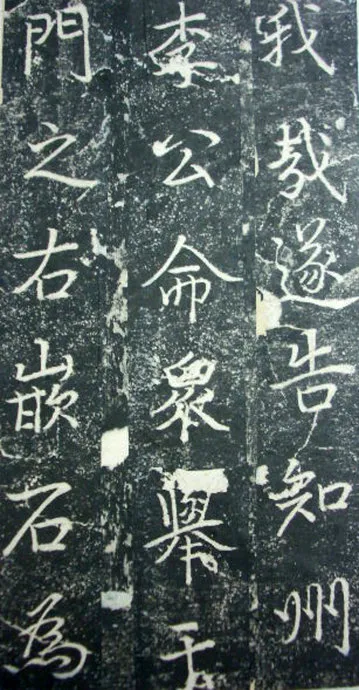 我哉遂告知州
李公命眾舉于
門之右嵌石為